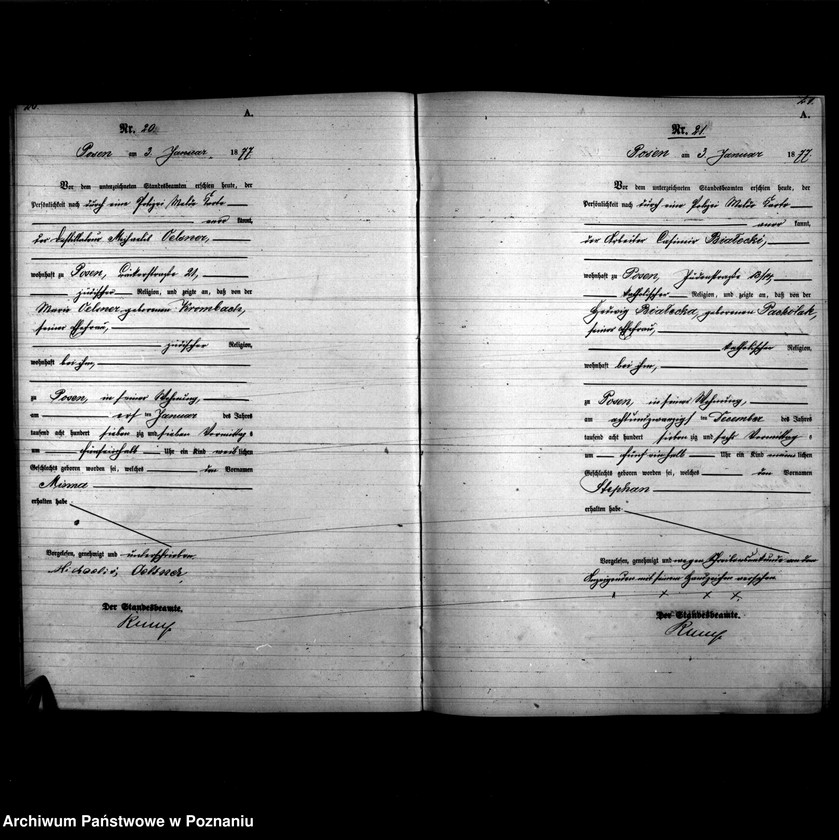 A.
Nr. 20
Posen am 3 Januar 1877
Vor dem unterzeichneten Standesbeamten erschien heute, der
Persönlichkeit nach durch eine Polizei Melde Karte
aner kannt,
der Destillateur Michaelis Oelsner,
wohnhaft zu Posen, 21,
jüdischer Religion, und zeigte an, daß von der
Marie Oelsner geborenen Krombach,
seiner Ehefrau,
jüdischer Religion,
wohnhaft bei ihm,
zu Posen, in seiner Wohnung,
am ersten Januar des Jahres
tausend acht hundert sieben zig und sieben Vormittags
um Uhr ein Kind weiblichen
Geschlechts geboren worden sei, welches den Vornamen
Minna
erhalten habe
Vorgelesen, genehmigt und unterschrieben
Michaelis Oelsner,
Der Standesbeamte.
21.
A.
Nr. 21
Posen am 3 Januar 1877.
Vor dem unterzeichneten Standesbeamten erschien heute, der
Persönlichkeit nach durch eine Polizei Melde Karte
aner kannt,
der Arbeiter Casimir Białecki,
wohnhaft zu Posen, Judenstraße 13/14,
katholischer Religion, und zeigte an, daß von der
Hedwig Białecka, geborenen Packolak,
seiner Ehefrau,
katholischer Religion,
wohnhaft bei ihm,
zu Posen, in seiner Wohnung,
am achtundzwanzigsten December des Jahres
tausend acht hundert sieben zig und sechs Vormittags
um Uhr ein Kind männlichen
Geschlechts geboren worden sei, welches den Vornamen
Stephan
erhalten habe
Vorgelesen, genehmigt und wegen Schreibensunkunde von dem
Anzeigenden mit seinem Handzeichen versehen
x x x
Der Standesbeamte.
Archiwum Państwowe w Poznaniu